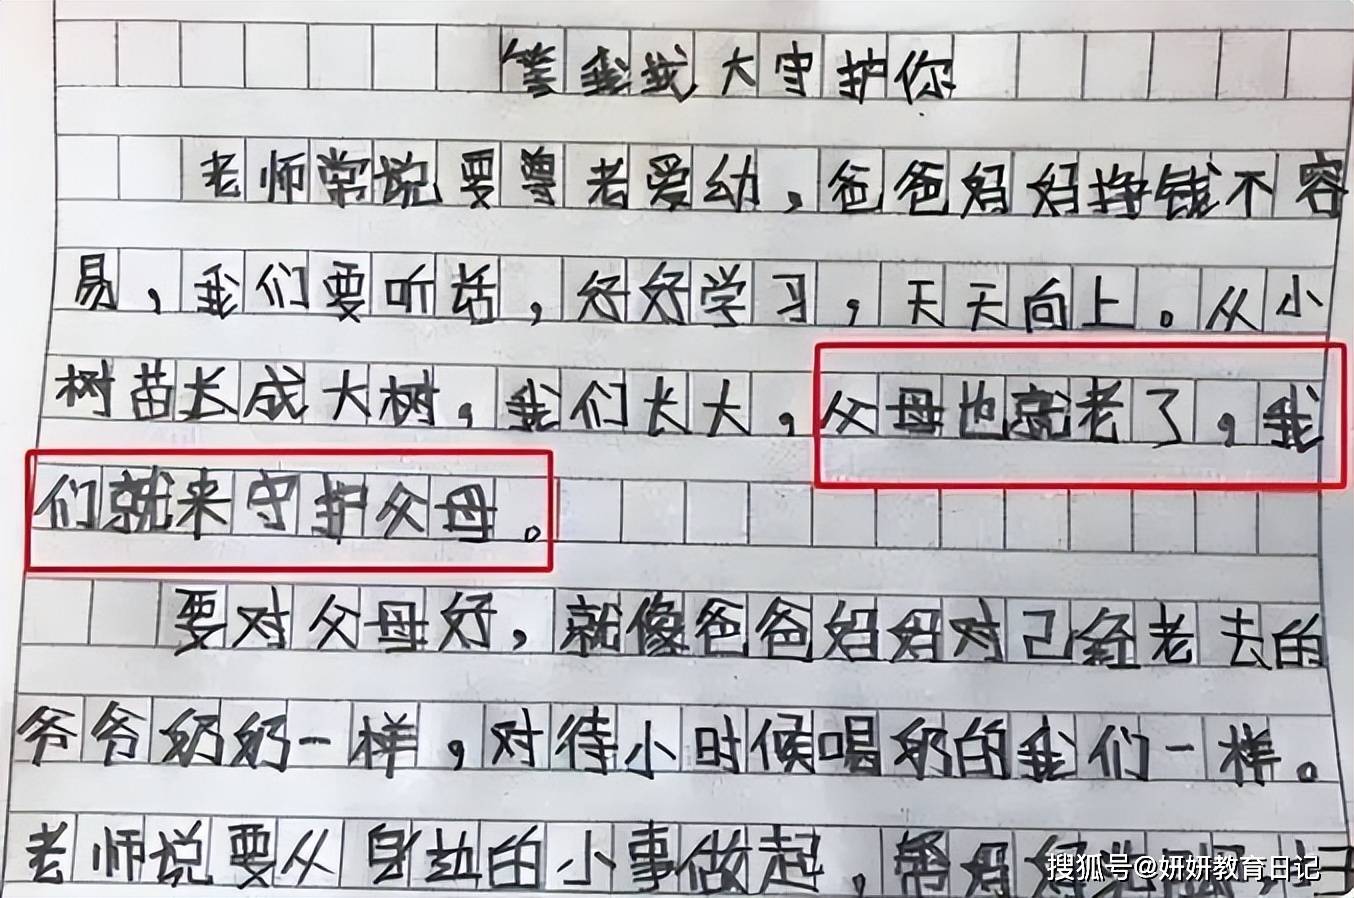 等我大守护你
老师常说要尊老爱幼，爸爸妈妈挣钱不容
易，我们要听话，好好学习，天天向上。从小
树苗长成大树，我们长大，父母也就老了，我
们就来守护父母。
要对父母好，就像爸爸妈妈对己经老去的
爷爷奶奶一样，对待小时候喝奶的我们一样。
老师说要从身边的小事做起，帮妈妈
搜狐号@妍妍教育日记